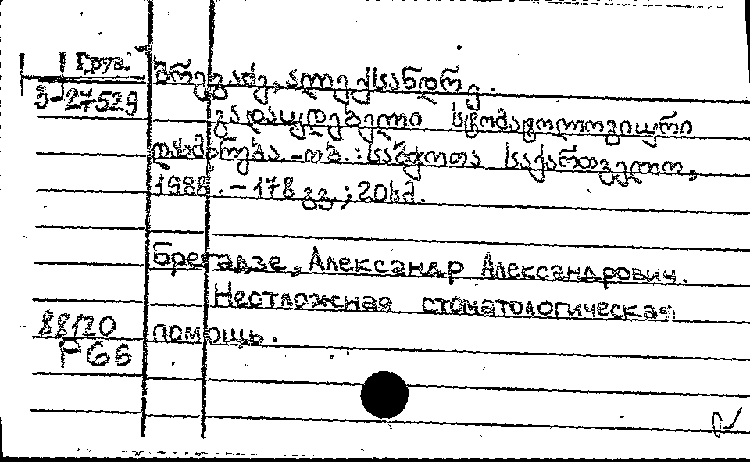 Груз.
3-27529
ბრეგაძე, ალექსანდრე.
გადაუდებელი სტომატოლოგიური
დახმარება. - თბ.: საბჭოთა საქართველო,
1988. - 178 გვ.; 20სმ.
Брегадзе, Александр Александрович.
Неотложная стоматологическая
помощь.
88120